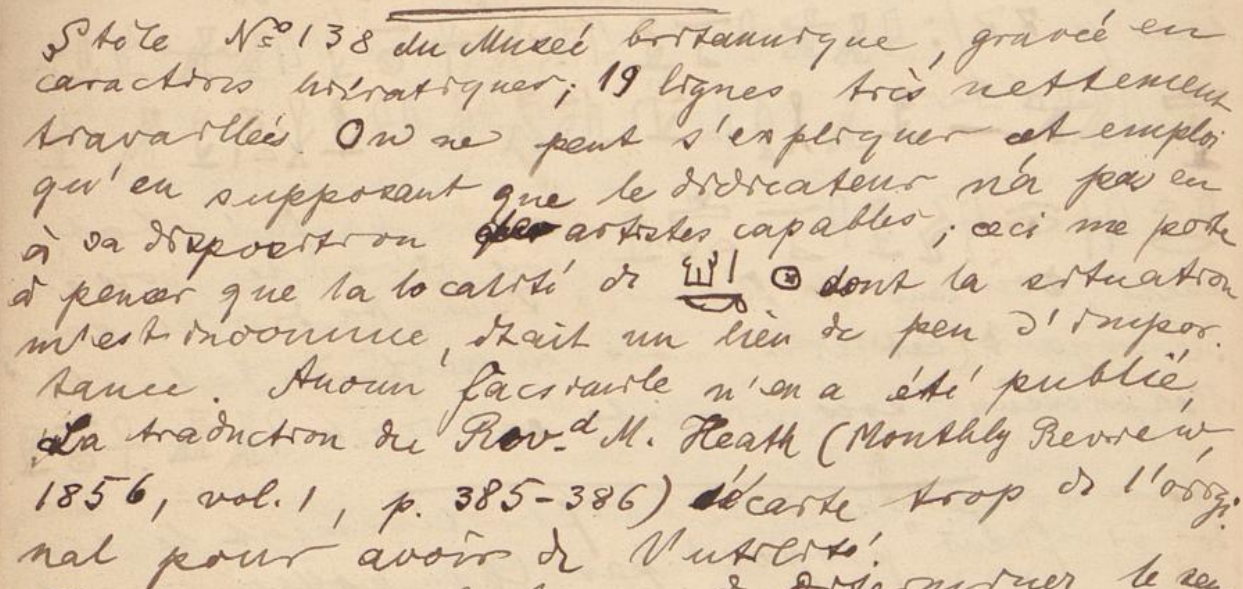 Stèle Nº 138 du Museé britannique, gravée en
caractères hiératiques; 19 lignes très nettement
travaillées. On ne peut s'expliquer cet emploi
qu'en supposant que le dédicateur n'a pas eu
à sa disposition artistes capables; ceci me porte
à penser que la localité de dont la situation
m'est inconnue, était un lieu de peu d'impor.
tance. Aucun facsimile n'en a été publié,
La traduction du Rev.d M. Heath (Monthly Review,
1856, vol. 1, p. 385-386) s'écarte trop de l'origi.
nal pour avoir de l'utilité.
déterminer le sen